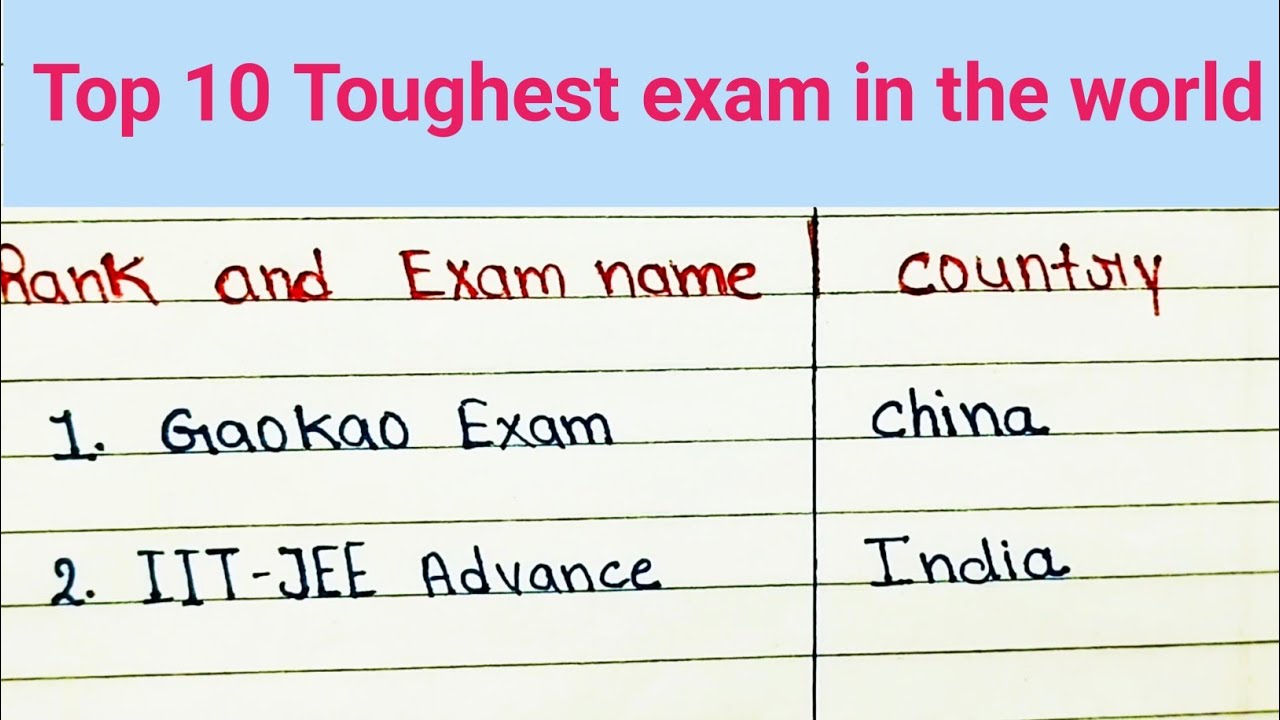 Top 10 Toughest exam in the world
Rank and Exam name country
1. Gaokao Exam China
2. IIT-JEE Advance India